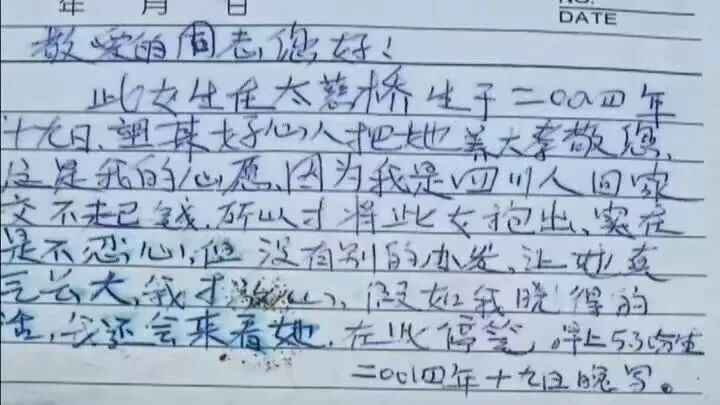 年 月 日
NO.
DATE
敬爱的同志您好！
此女生在太慈桥生于二00四年
十九日、望某好心人把她养大孝敬您,
这是我的心愿、因为我是四川人回家
交不起己钱.所以才将此女抱出、实在
是不忍心,但没有别的办发,让她真
长大,我才心、假如我晓得的
话,我还会来看她.在此停笔,
二00四年十九日晚写。